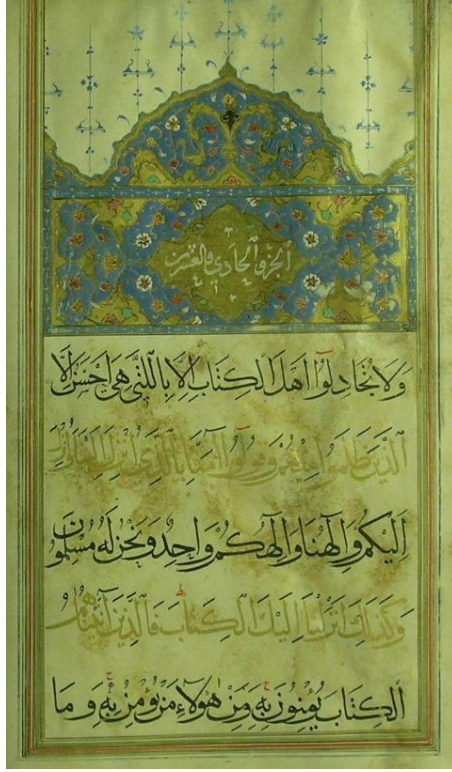 الجزو الحادي والعشرين
وَلَا تُجَادِلُوا اَهْلَ الْكِتَابِ اِلَّا بِاللَّتِي هِيَ اَحْسَنُ اِلَّا
الَّذِينَ ظَلَمُوا مِنْهُمْ وَقُولُوا آمَنَّا بِالَّذِي اُنْزِلَ اِلَيْنَا وَاُنْزِلَ
اِلَيْكُمْ وَاِلَهُنَا وَاِلَهُكُمْ وَاحِدٌ وَنَحْنُ لَهُ مُسْلِمُونَ
وَكَذَلِكَ اَنْزَلْنَا اِلَيْكَ الْكِتَابَ فَالَّذِينَ آتَيْنَاهُمُ
الْكِتَابَ يُؤْمِنُونَ بِهِ وَمِنْ هَؤُلَاءِ مَنْ يُؤْمِنُ بِهِ وَمَا